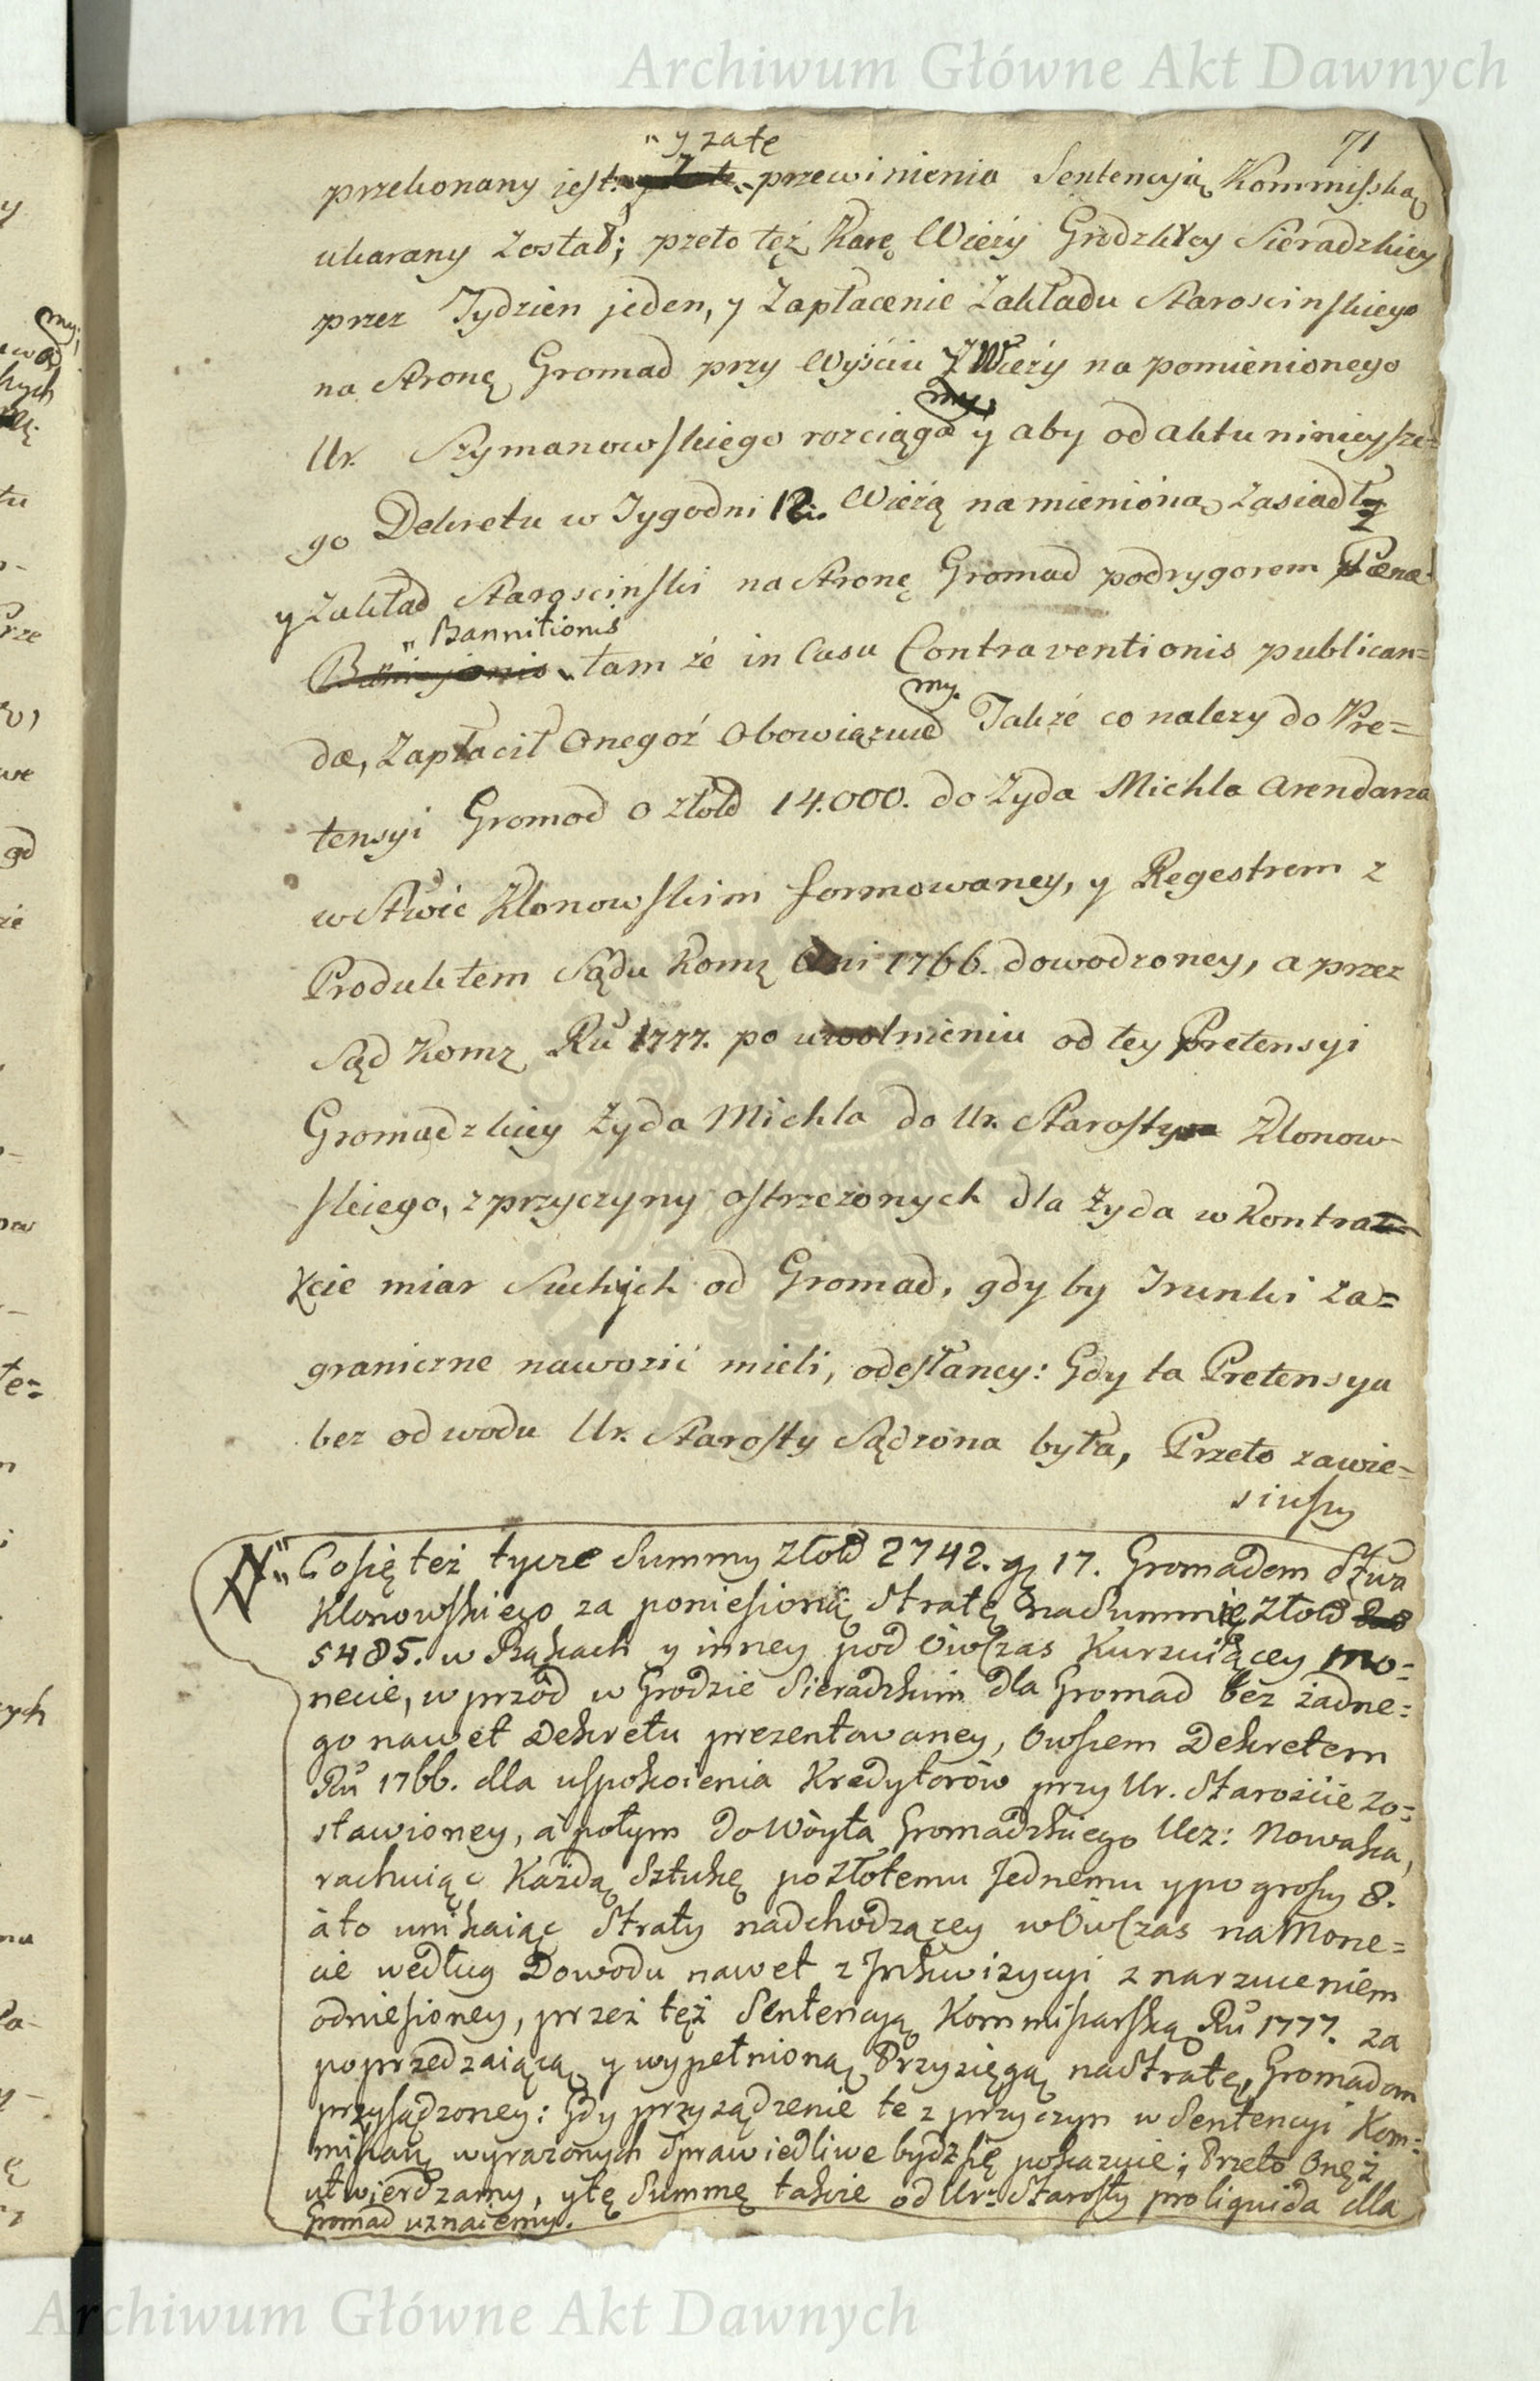 Archiwum Główne Akt Dawnych
71
" y zatę
przekonany jest przewinienia Sentencyią Kommisską
ukarany został; przeto tęż Karę Wieży Grodzkiey Sieradzkiey
przez Tydzien jeden, y Zapłacenie Zakładu Staroscinskiego
na stronę Gromad przy Wyściu z Wieży na pomienionego
my,
Ur. Szymanowskiego rozciąga y aby od aktu ninieysze=
go Dekretu w Tygodni 12. Wieżą namienioną zasiadł
y Zakład Starosciński na stronę Gromad pod rygorem Pœnæ
" Bannitionis
tamże in Casu Contraventionis publican=
my.
dæ, Zapłacił Onegoż Obowiązuie Takze co nalezy do Pre=
tensyi Gromad o złotd 14.000. do Zyda Michla Arendarza
w Stwie Klonowskim formowaney, y Regestrem z
Produktem Sądu Komą Ani 1766. dowodzoney, a przez
Sąd Komą Ru 1777. po uwolnieniu od tey Pretensyi
Gromadzkiey Zyda Michla do Ur. Starosty Klonow-
skiego, z przyczyny ostrzezonych dla Zyda w Kontra
kcie miar Suchych od Gromad, gdyby Trunki Za=
graniczne nawozić mieli, odesłaney: Gdy ta Pretensya
bez odwodu Ur. Starosty Sądzona była, Przeto zawie=
siuszy
N" Co się też tycze Summy złotd 2742. g 17. Gromadom Stwa
Klonowskiego za poniesioną Stratę na Summie złotd
5485. w Bąkach y inney pod ówczas Kurzuiącey mo=
necie, w przód w Grodzie Sieradzkim dla Gromad bez żadne=
go nawet Dekretu prezentowaney, Owszem Dekretem
Ru 1766. dla uspokoienia Kredytorów przy Ur. Staroscie zo=
stawioney, a potym do Wóyta Gromadzkiego Ucz: Nowaka,
rachuiąc Każdą Sztukę po złotemu Jednemu y po groszy 8.
a to unikaiąc Straty nadchodzącey wówczas na Mone=
cie według Dowodu nawet z Inkwizycyi z narzuceniem
odniesioney, przez tęż Sentencyą Kommissarską Ru 1777. za
poprzedzaiącą y wypełnioną Przysięgą na Stratę, Gromadom
przysądzoney: Gdy przysądzenie te z przyczyn w Sentencyi Kom=
wyrazonych Sprawiedliwe bydź się pokazuie; Przeto Onęż
utwierdzamy, y tę Summę także od Ur: Starosty pro liquida dla
Gromad uznaiemy.
Archiwum Główne Akt Dawnych